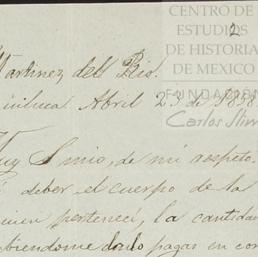 CENTRO DE
ESTUDIOS
DE HISTORIA
DE MEXICO
FUNDACIÓN
Carlos Slim
2
Martinez del Rio.
Abril 23 de 1898
Muy S mio, de mi respeto.
deber el cuerpo de la
quien pertenece, la cantidad
dado pagar en con